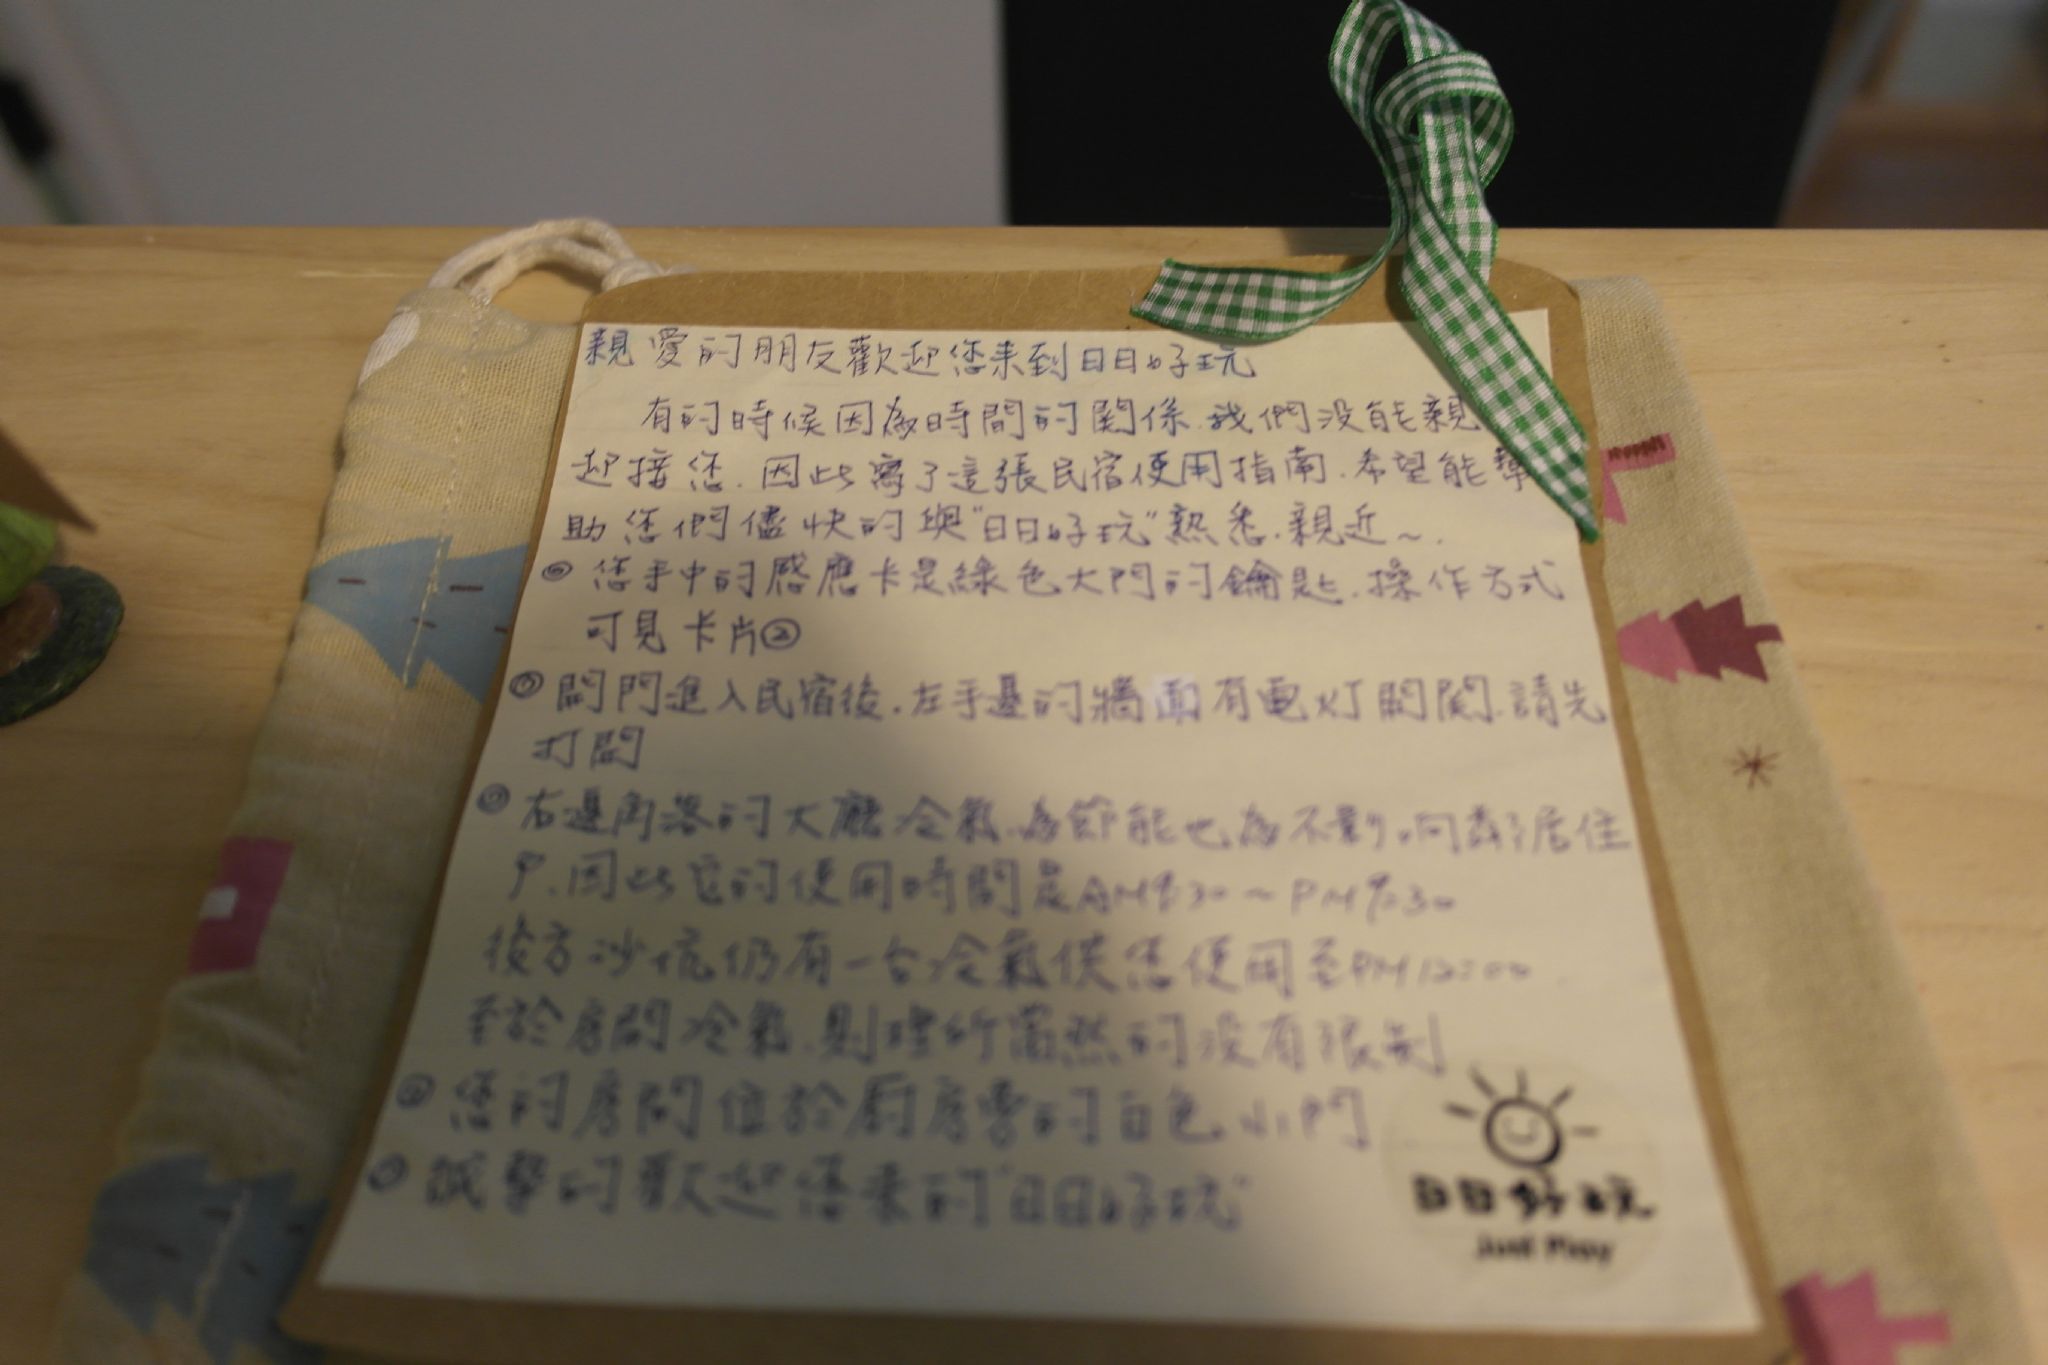 親愛的朋友歡迎您来到日日好玩
有的時候因為時間的関係.我們没能親
迎接您.因此寫了這張民宿使用指南.希望能幫
助您們儘快的與"日日好玩"熟悉.親近~.
您手中的感應卡是綠色大門的鑰匙.操作方式
可見卡片②
開門進入民宿後.左手邊的牆面有電灯開関.請先
打開
右邊角落的大廳冷氣.為節能也為不影响鄰居住
戶.因此它的使用時間是AM8:30~PM9:30
後方沙坑仍有一台冷氣供您使用至PM12:00
至於房間冷氣.則理所當然的没有限制
④您的房間位於廚房旁的白色小門
誠摯的歡迎您来的"日日好玩"
日日好玩
Just Play